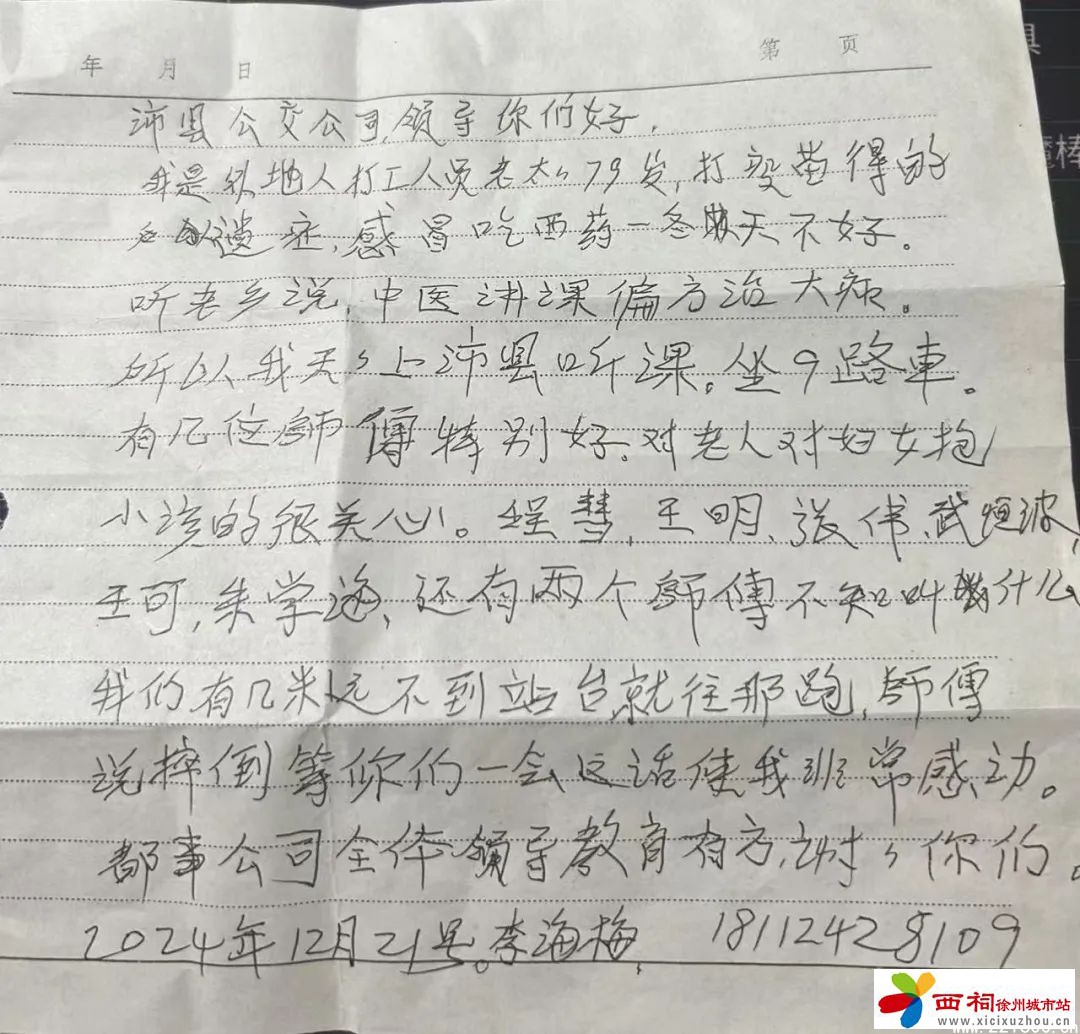 年 月 日 第 页
沛县公交公司,领导你们好,
我是外地人打工人员老太々79岁,打疫苗得的
遗症,感冒吃西药一冬天不好。
听老乡说,中医讲课偏方治大病。
所以我天々上沛县听课。坐9路車。
有几位師傅特别好。对老人对妇女抱
小孩的很关心。程慧,王明,张伟,武恒波,
王可,朱学海,还有两个師傅不知叫什么
我们有几米远不到站台就往那跑,師傅
说摔倒等你们一会这话使我非常感动。
都事公司全体领导教育有方,谢々你们。
2024年12月21号。李海梅, 18112428109
西祠徐州城市站
www.xicixuzhou.cn